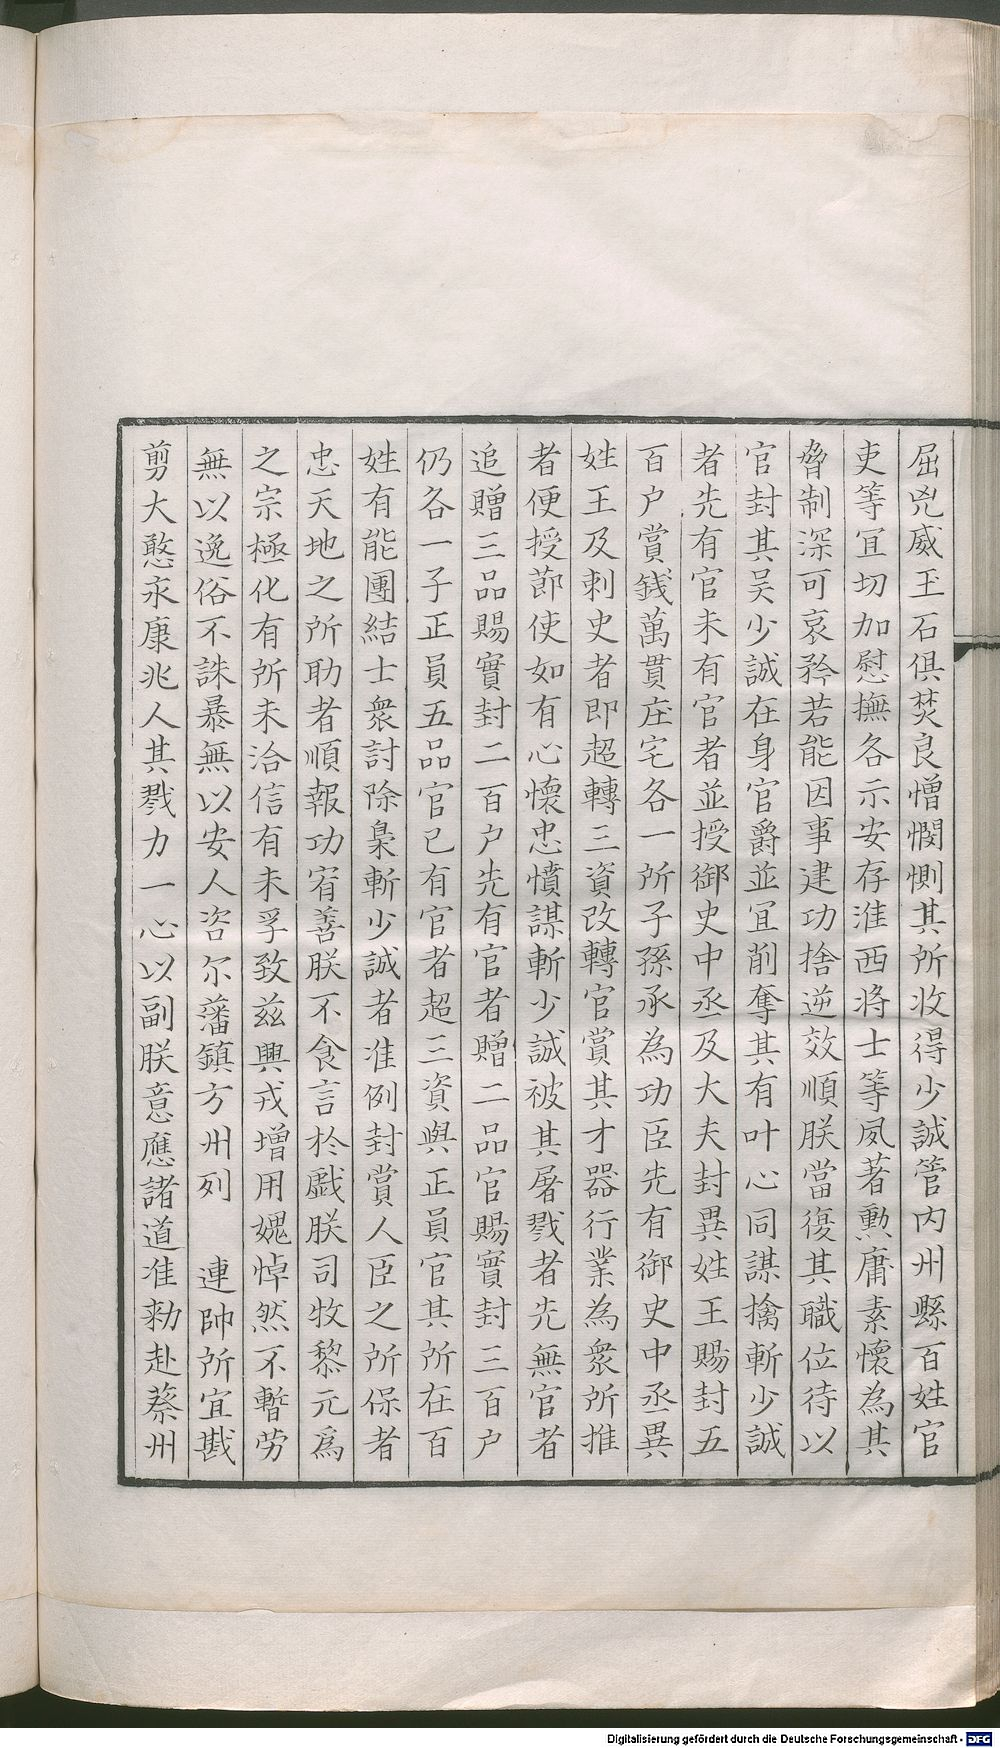 屈兇威玉石俱焚良憎憫惻其所收得少誠管内州縣百姓官
吏等宜切加慰撫各示安存淮西将士等夙著勲庸素懷為其
脅制深可哀矜若能因事建功捨逆效順朕當復其職位待以
官封其吴少誠在身官爵並宜削奪其有叶心同謀擒斬少誠
者先有官未有官者並授御史中丞及大夫封異姓王賜封五
百户賞錢萬貫庄宅各一所子孫承為功臣先有御史中丞異
姓王及刺史者即超轉三資改轉官賞其才器行業為衆所推
者便授莭使如有心懷忠憤謀斬少誠被其屠戮者先無官者
追贈三品賜實封二百户先有官者贈二品官賜實封三百户
仍各一子正員五品官已有官者超三資與正員官其所在百
姓有能團結士衆討除梟斬少誠者准例封賞人臣之所保者
忠天地之所助者順報功宥善朕不食言扵戯朕司牧黎元爲
之宗極化有所未洽信有未孚致兹興戎增用媿悼然不暫劳
無以逸俗不誅暴無以安人咨尔藩鎮方州列　連帥所宜戡
剪大憝永康兆人其戮力一心以副朕意應諸道准勑赴蔡州
Digitalisierung gefördert durch die Deutsche Forschungsgemeinschaft - DFG